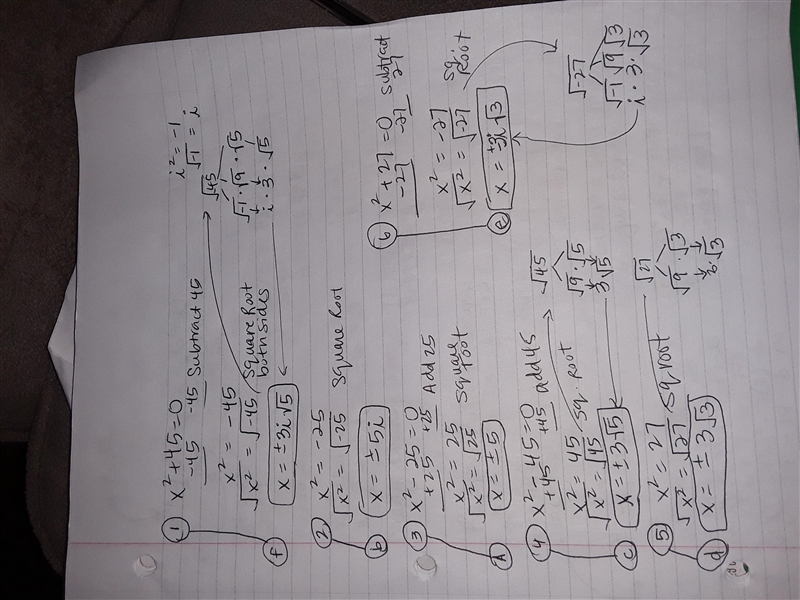 ① x² + 45 = 0
-45 -45 Subtract 45
x² = -45
√x² = √-45 Square Root
both sides
ⓕ x = ±3i√5
i² = -1
√-1 = i
√45
√-1 · √9 · √5
i · 3 · √5
② x² = -25
√x² = √-25 Square Root
ⓑ x = ±5i
③ x² - 25 = 0
+25 +25 Add 25
x² = 25
√x² = √25 Square
root
Ⓐ x = ±5
④ x² - 45 = 0
+45 +45 add 45
x² = 45
√x² = √45 Sq. root
ⓒ x = ±3√5
√45
√9 · √5
3√5
⑤ x² = 27
√x² = √27 Sq root
ⓓ x = ±3√3
√27
√9 · √3
3·√3
⑥ x² + 27 = 0
-27 -27 Subtract
27
x² = -27
√x² = √-27 Sq.
Root
ⓔ x = ±3i√3
√-27
√-1 √9 √3
i · 3 · √3